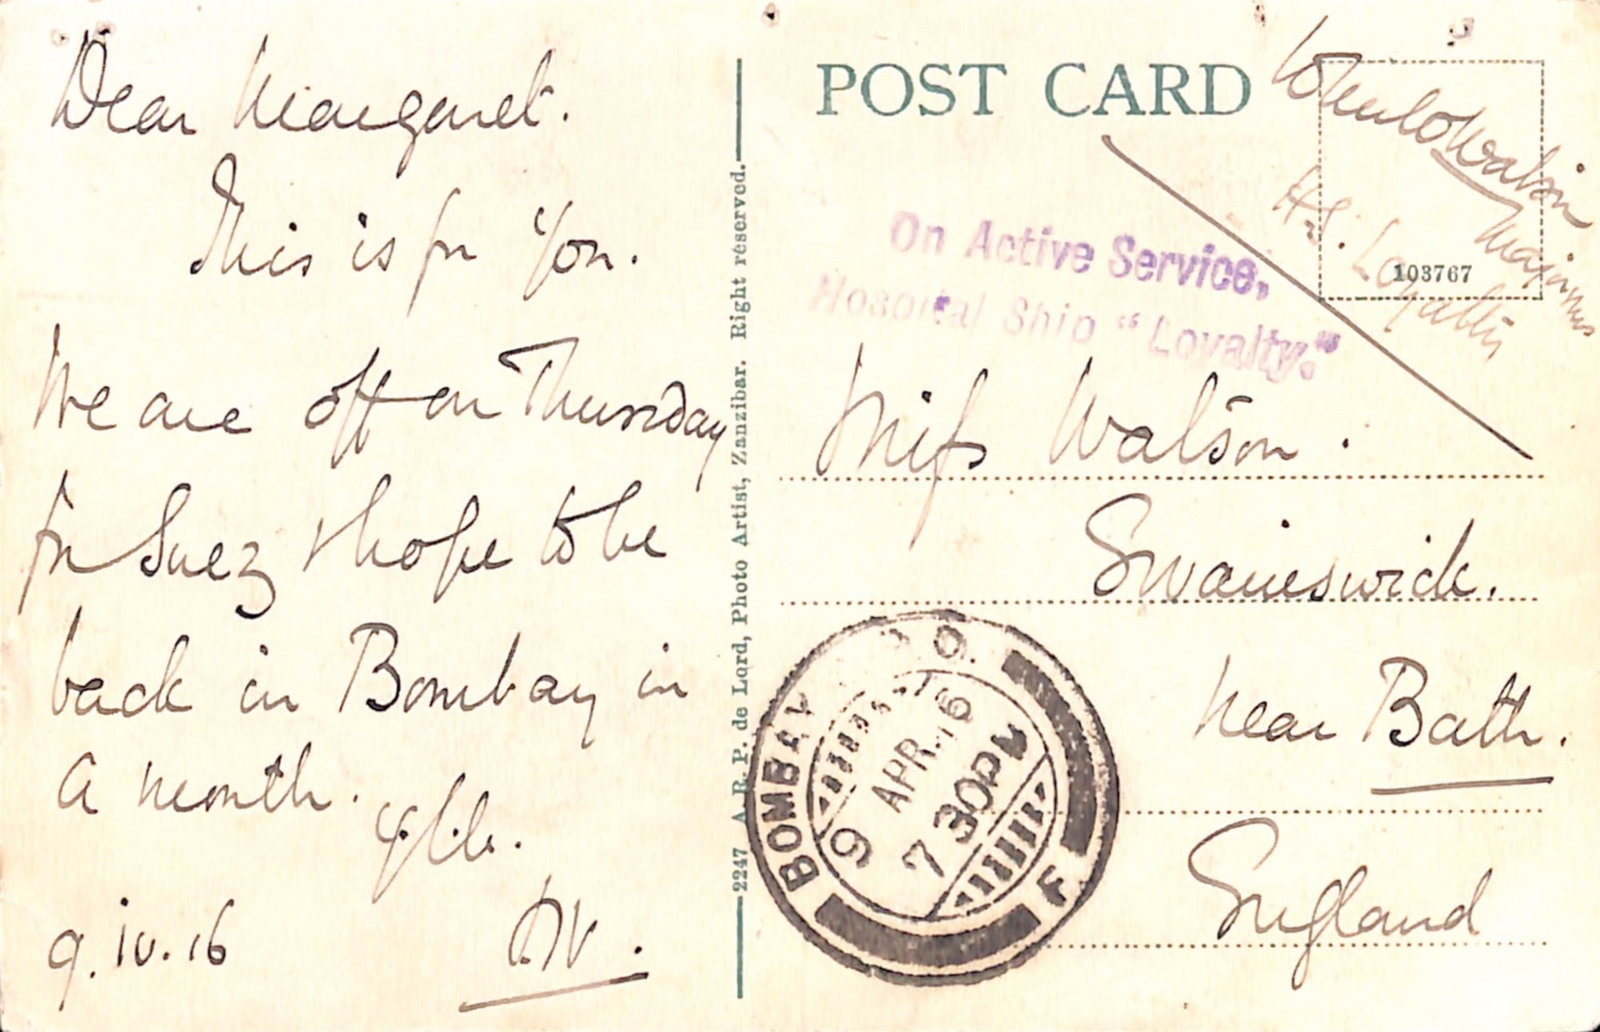 Dear Margaret.
This is for you.
We are off on Thursday
for Suez & hope to be
back in Bombay in
a month.
9.iv.16
2247 A. R. P. de Lord, Photo Artist, Zanzibar. Right reserved.
POST CARD
Watson
H.S. Loyalty
103767
On Active Service,
Hospital Ship "Loyalty."
Miss Watson.
Swaineswick.
near Bath.
England
BOMBAY G.P.O.
9 APR. 16
7 30PM
F.